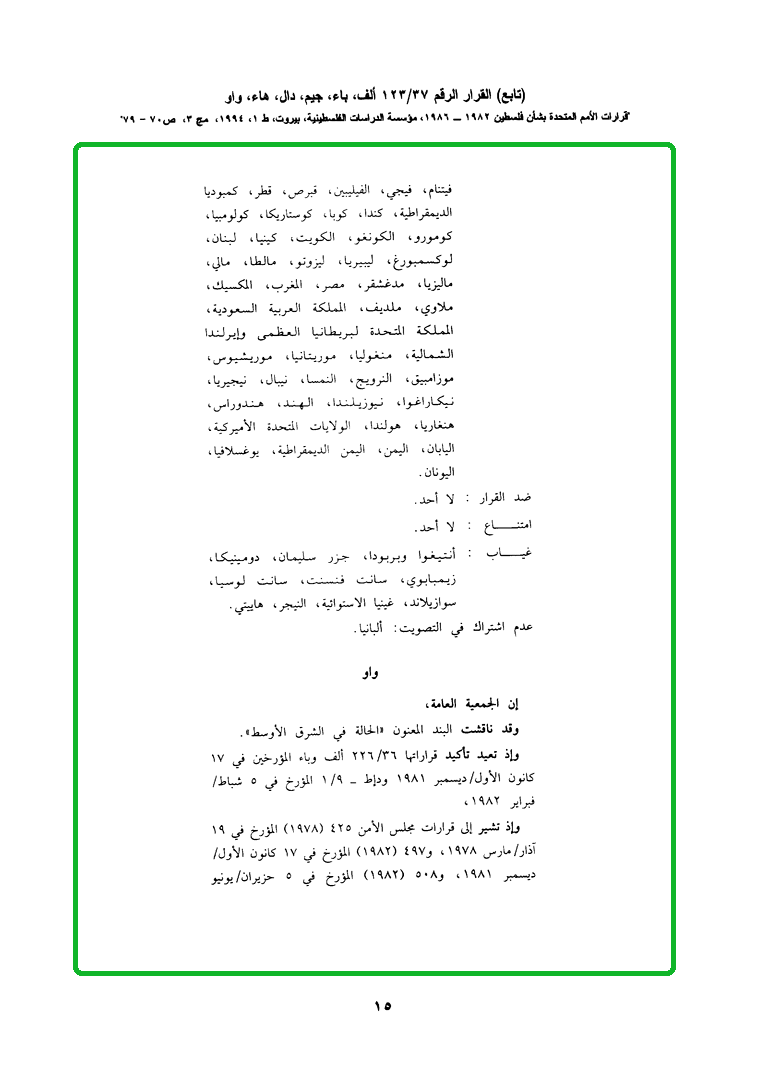 (تابع) القرار الرقم ١٢٣/٣٧ ألف، باء، جيم، دال، هاء، واو
"قرارات الأمم المتحدة بشأن فلسطين ١٩٨٢ ــ ١٩٨٦، مؤسسة الدراسات الفلسطينية، بيروت، ط ١، ١٩٩٤، مج ٣، ص٧٠ - ٧٩"
فيتنام، فيجي، الفيليبين، قبرص، قطر، كمبوديا
الديمقراطية، كندا، كوبا، كوستاريكا، كولومبيا،
كومورو، الكونغو، الكويت، كينيا، لبنان،
لوكسمبورغ، ليبيريا، ليزوتو، مالطا، مالي،
ماليزيا، مدغشقر، مصر، المغرب، المكسيك،
ملاوي، ملديف، المملكة العربية السعودية،
المملكة المتحدة لبريطانيا العظمى وإيرلندا
الشمالية، منغوليا، موريتانيا، موريشيوس،
موزامبيق، النرويج، النمسا، نيبال، نيجيريا،
نيكاراغوا، نيوزيلندا، الهند، هندوراس،
هنغاريا، هولندا، الولايات المتحدة الأميركية،
اليابان، اليمن، اليمن الديمقراطية، يوغسلافيا،
اليونان.
ضد القرار : لا أحد.
امتنـــــاع : لا أحد.
غيـــــاب : أنتيغوا وبربودا، جزر سليمان، دومينيكا،
زيمبابوي، سانت فنسنت، سانت لوسيا،
سوازيلاند، غينيا الاستوائية، النيجر، هاييتي.
عدم اشتراك في التصويت: ألبانيا.
واو
إن الجمعية العامة،
وقد ناقشت البند المعنون «الحالة في الشرق الأوسط».
وإذ تعيد تأكيد قراراتها ٢٢٦/٣٦ ألف وباء المؤرخين في ١٧
كانون الأول/ديسمبر ١٩٨١ ودإط ــ ١/٩ المؤرخ في ٥ شباط/
فبراير ١٩٨٢،
وإذ تشير إلى قرارات مجلس الأمن ٤٢٥ (١٩٧٨) المؤرخ في ١٩
آذار/مارس ١٩٧٨، و٤٩٧ (١٩٨٢) المؤرخ في ١٧ كانون الأول/
ديسمبر ١٩٨١، و٥٠٨ (١٩٨٢) المؤرخ في ٥ حزيران/يونيو
١٥